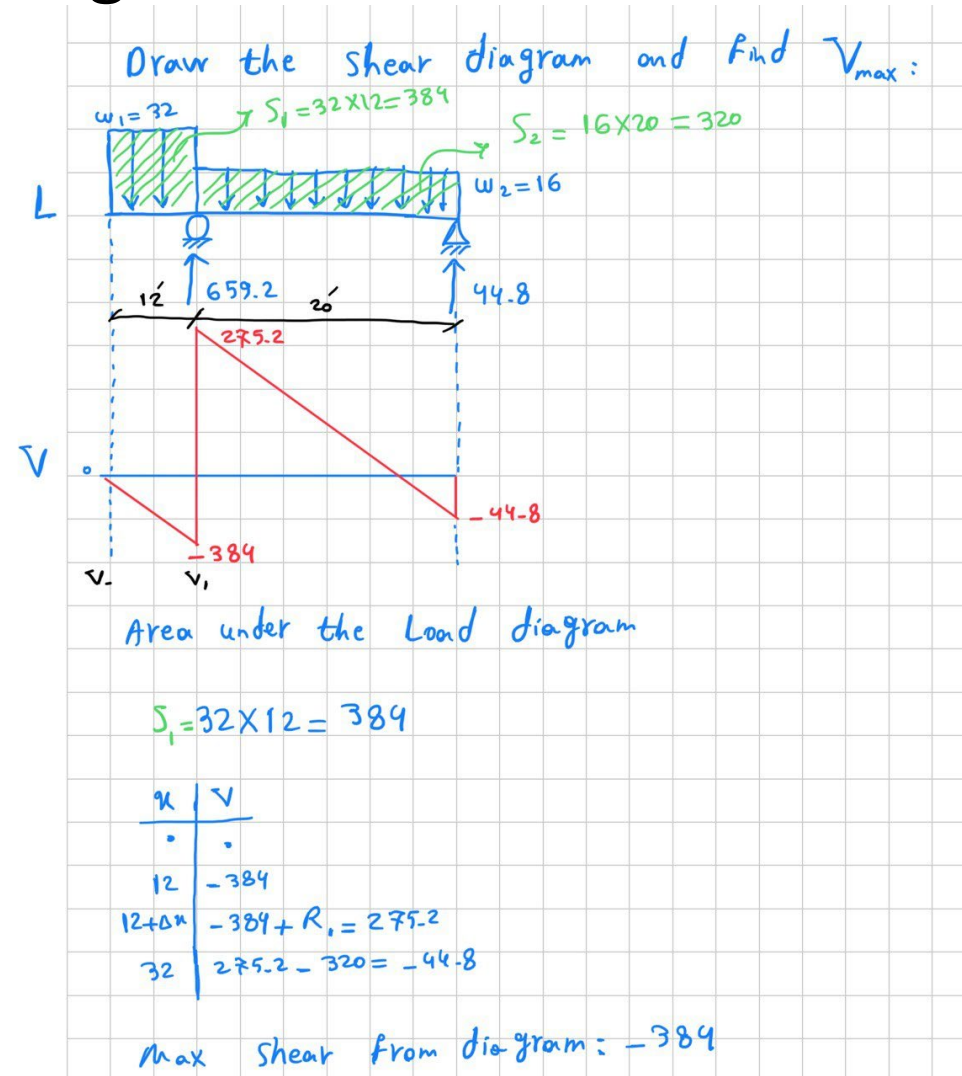 Draw the shear diagram and find Vmax:
w1 = 32
S1 = 32×12 = 384
S2 = 16×20 = 320
w2 = 16
L
659.2
44.8
12′
20′
275.2
V
0
-44.8
-384
V-
V1
Area under the Load diagram
S1 = 32×12 = 384
x | V
. | .
12 | -384
12+Δx | -384 + R1 = 275.2
32 | 275.2 - 320 = -44.8
Max shear from diagram: -384